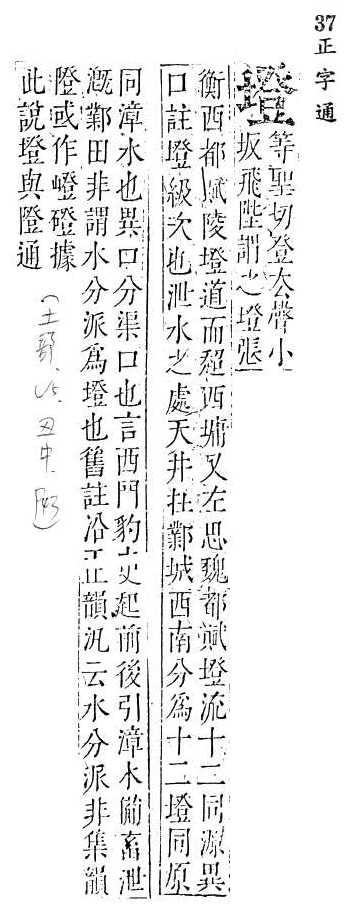 37正字通
墱
等聖切登去聲小
坂飛陛謂之墱張
衡西都賦陵墱道而超西墉又左思魏都賦墱流十二同源異
口註墱級次也泄水之處天井在鄴城西南分爲十二墱同原
同漳水也異口分渠口也言西門豹史起前後引漳水備畜泄
漑鄴田非謂水分派爲墱也舊註沿正韻汎云水分派非集韻
隥或作嶝磴據
此說墱與隥通
(土部、15、丑中、